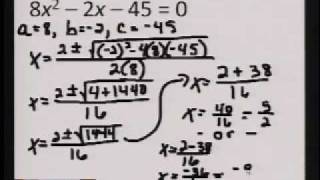 8x² − 2x − 45 = 0
a=8, b=-2, c=-45
x = 2 ± √((-2)²-4(8)(-45)) / 2(8)
x = 2 ± √(4+1440) / 16
x = 2 ± √1444 / 16
x = 2+38 / 16
x = 40/16 = 5/2
- or -
x = 2-38 / 16
x = -36/16 = -9